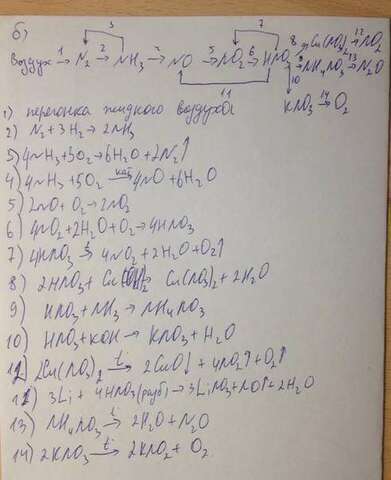 б)
3 7
Воздух 1→ N₂ 2→ NH₃ 4→ NO 5→ NO₂ 6→ HNO₃ 8→ Cu(NO₃)₂ 12→ NO₂
9→ NH₄NO₃ 13→ N₂O
11 10
KNO₃ 14→ O₂
1) перегонка жидкого воздуха
2) N₂ + 3H₂ → 2NH₃
3) 4NH₃ + 3O₂ → 6H₂O + 2N₂↑
4) 4NH₃ + 5O₂ кат→ 4NO + 6H₂O
5) 2NO + O₂ → 2NO₂
6) 4NO₂ + 2H₂O + O₂ → 4HNO₃
7) 4HNO₃ t→ 4NO₂ + 2H₂O + O₂↑
8) 2HNO₃ + Cu(OH)₂ → Cu(NO₃)₂ + 2H₂O
9) HNO₃ + NH₃ → NH₄NO₃
10) HNO₃ + KOH → KNO₃ + H₂O
12) 2Cu(NO₃)₂ t→ 2CuO↓ + 4NO₂↑ + O₂↑
11) 3Li + 4HNO₃(разб) → 3LiNO₃ + NO↑ + 2H₂O
13) NH₄NO₃ t→ 2H₂O + N₂O
14) 2KNO₃ t→ 2KNO₂ + O₂